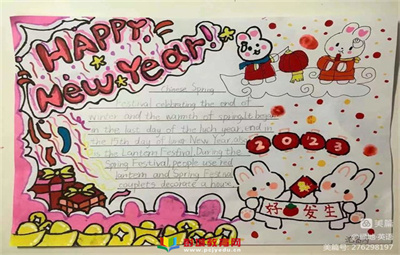 HAPPY
New Year!
Chinese Spring
Festival celebrating the end of
winter and the warmth of spring. It began
on the last day of the luch year, end in
the 15th day of Long New Year also
is the Lantern Festival. During the
Spring Festival, people use red
lantern and Spring Festival
couplets decorate a house.
2023
好 发生
美篇
美篇号：276298197